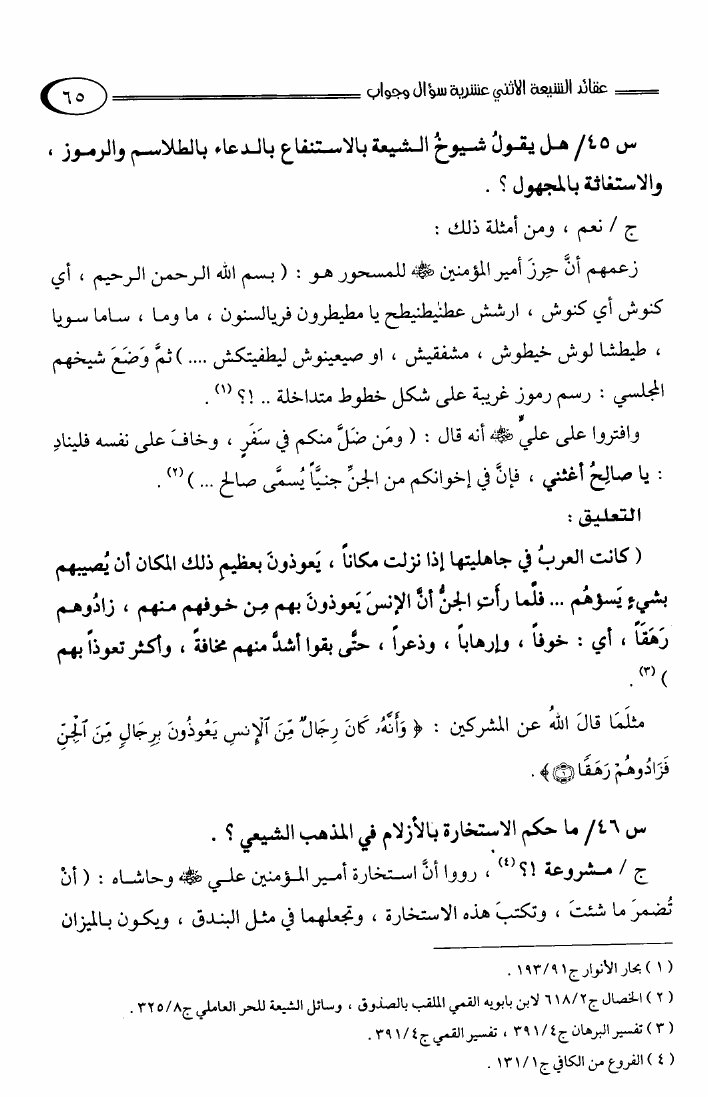 عقائد الشيعة الاثني عشرية سؤال وجواب
٦٥
س ٤٥/ هـل يقـولُ شـيوخُ الـشيعة بالاسـتنفاع بالـدعاء بالطلاسـم والرمـوز ،
والاستغاثة بالمجهول ؟ .
ج / نعم ، ومن أمثلة ذلك :
زعمهم أنَّ حِرزَ أمير المؤمنين ﷺ للمسحور هـو : ( بـسم الله الـرحمن الـرحيم ، أي
كنوش أي كنوش ، ارشش عطنيطنيطح يا مطيطرون فريالسنون ، ما ومـا ، سـاما سـويا
، طيطشا لوش خيطوش ، مشفقيش ، او صيعينوش ليطفيتكش .... ) ثمَّ وَضَعَ شيخهم
المجلسي : رسم رموز غريبة على شكل خطوط متداخلة .. !؟ (١) .
وافتروا على عليٍّ أنه قال : ( ومَن ضَلَّ منكم في سَفَرٍ ، وخافَ على نفسه فلينادِ
: يا صالِحُ أغثني ، فإنَّ في إخوانكم من الجنِّ جنيَّاً يُسمَّى صالح ... ) (٢) .
التعليق :
( كانت العربُ في جاهليتها إذا نزلت مكاناً ، يَعوذونَ بعظيمِ ذلك المكان أن يُصيبهم
بشيءٍ يَسؤهُم ... فلَّما رأَتِ الجنُّ أنَّ الإنسَ يَعوذونَ بهم مِـن خـوفهم مـنهم ، زادُوهـم
رَهَقَاً ، أي : خوفاً ، وإرهاباً ، وذعراً ، حتَّى بقوا أشدَّ منهم مخافةً ، وأكثر تعوذاً بهم
) (٣) .
مثلَمَا قالَ اللهُ عن المشركين : ﴿ وَأَنَّهُۥ كَانَ رِجَالٌ مِّنَ ٱلْإِنسِ يَعُوذُونَ بِرِجَالٍ مِّنَ ٱلْجِنِّ
فَزَادُوهُمْ رَهَقًا ٦ ﴾ .
س ٤٦/ ما حكم الاستخارة بالأزلام في المذهب الشيعي ؟ .
ج / مـشروعة !؟ (٤) ، رووا أنَّ اسـتخارة أمـير المـؤمنين علـي وحاشـاه : ( أنْ
تُضمرَ ما شئتَ ، وتكتبَ هذه الاستخارة ، وتجعلهما في مثـل البنـدق ، ويكـون بـالميزان
( ١ ) بحار الأنوار ج٩١/ ١٩٣ .
( ٢ ) الخصال ج٢/ ٦١٨ لابن بابويه القمي الملقب بالصدوق ، وسائل الشيعة للحر العاملي ج٨/ ٣٢٥ .
( ٣ ) تفسير البرهان ج٤/ ٣٩١ ، تفسير القمي ج٤/ ٣٩١ .
( ٤ ) الفروع من الكافي ج١/ ١٣١ .